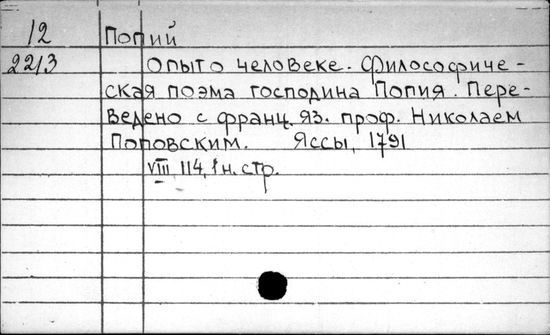 12 Попий
2213 Опыт о человеке. Философиче-
ская поэма господина Попия. Пере-
ведено с франц. яз. проф. Николаем
Поповским. Яссы, 1791
VIII, 114, 1 н. стр.